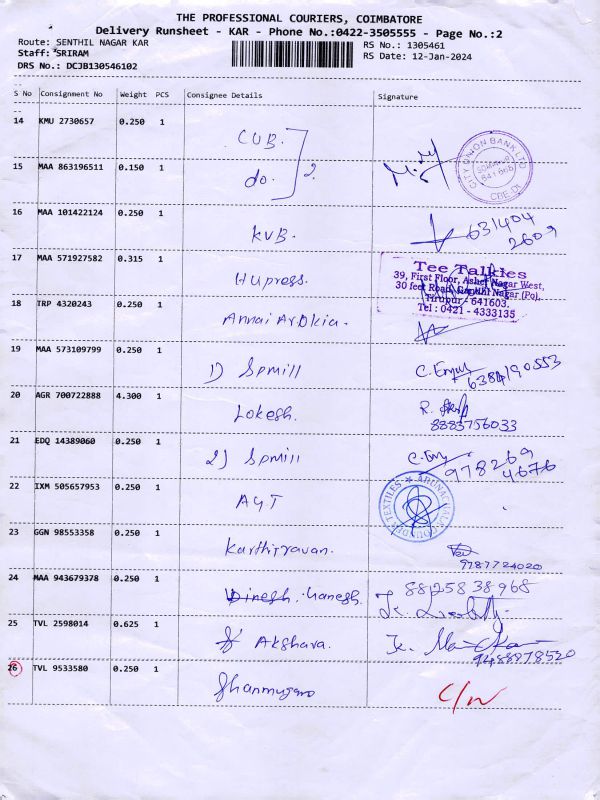 THE PROFESSIONAL COURIERS, COIMBATORE
Delivery Runsheet - KAR - Phone No.:0422-3505555 - Page No.:2
Route: SENTHIL NAGAR KAR
RS No.: 1305461
Staff: *SRIRAM
RS Date: 12-Jan-2024
DRS No.: DCJB130546102
S No Consignment No Weight PCS Consignee Details Signature
14 KMU 2730657 0.250 1 CUB.
15 MAA 863196511 0.150 1 do. 2.
CITY UNION BANK LTD
641 666
CBE.Dt
16 MAA 101422124 0.250 1 KVB. 631404
2609
17 MAA 571927582 0.315 1 Hupress.
Tee Talkies
39, First Floor, Asher Nagar West,
30 feet Road, Gandhi Nagar (Po).
Tirupur - 641603.
Tel : 0421 - 4333135
18 TRP 4320243 0.250 1 Annai Arokia.
19 MAA 573109799 0.250 1 1) Spmill 6384190553
20 AGR 700722888 4.300 1 Lokesh. R.
8883756033
21 EDQ 14389060 0.250 1 2) Spmill 978269
4676
22 IXM 505657953 0.250 1 AGT
ARUNACHALA GOUNDER TEXTILES
23 GGN 98553358 0.250 1 Karthijravan.
9787724020
24 MAA 943679378 0.250 1 Dinesh. Ganesh. 8825838968
25 TVL 2598014 0.625 1 Akshara.
9488978520
26 TVL 9533580 0.250 1 Shanmugam C/N